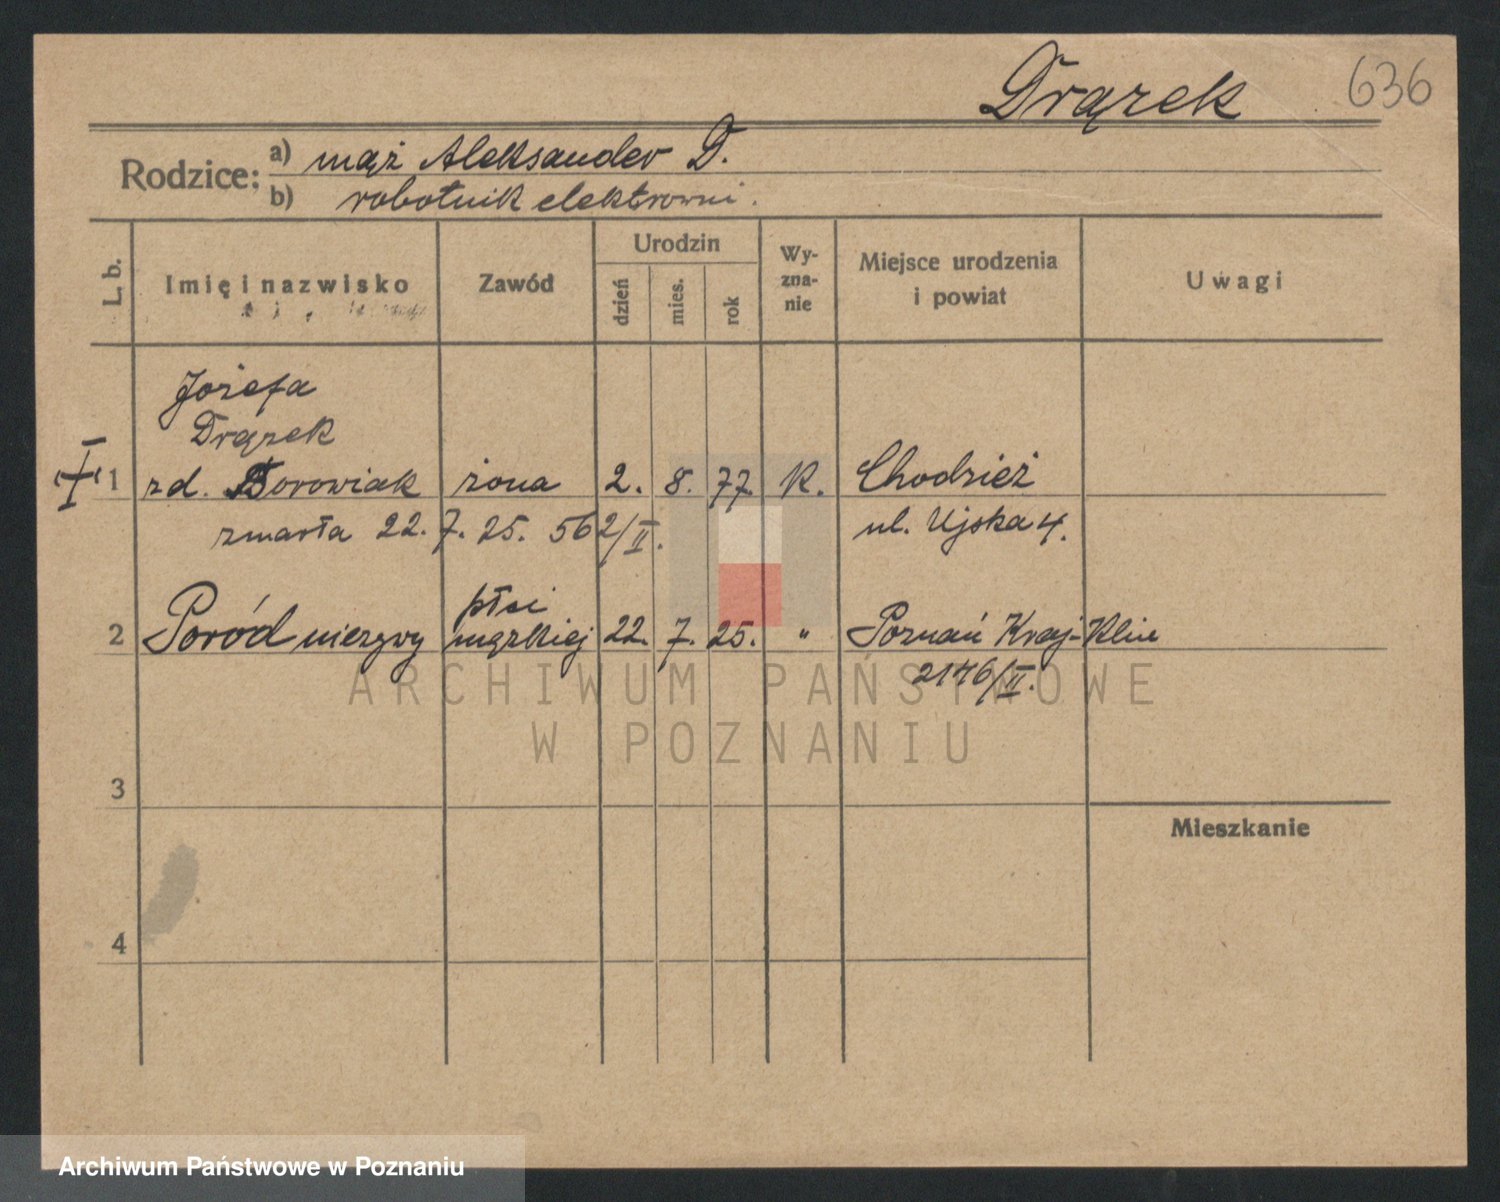 Drązek 636
Rodzice: a) mąż Aleksander D.
b) robotnik elektrowni.
L. b. Imię i nazwisko Zawód Urodzin dzień mies. rok Wy-zna-nie Miejsce urodzenia i powiat Uwagi
Józefa
Drązek
1 zd. Borowiak żona 2. 8. 77. K. Chodzież
zmarła 22. 7. 25. 562/II. ul. Ujska 4.
płci
2 Poród nieżywy męzkiej 22. 7. 25. " Poznań Kraj-Klin
2146/II.
3
Mieszkanie
4
ARCHIWUM PAŃSTWOWE
W POZNANIU
Archiwum Państwowe w Poznaniu